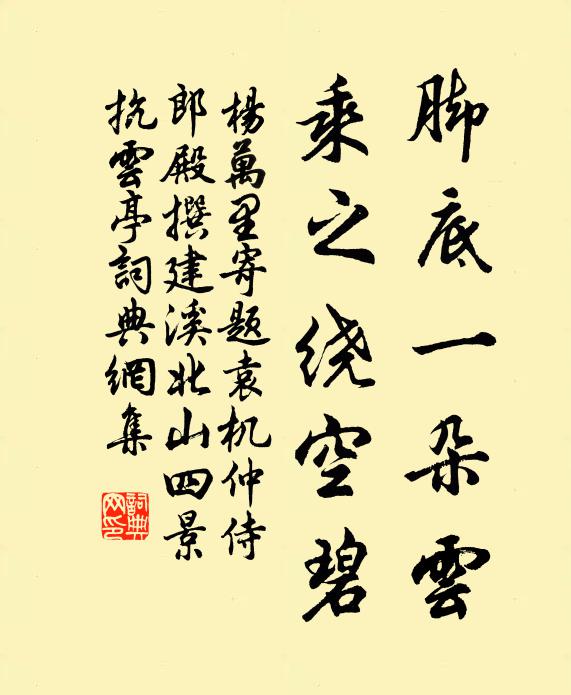 脚底一朵雲
乘之绕空碧
楊萬里寄題袁机仲侍
郎殿撰建溪北山四景
抗雲亭詞典網集
詞典網印